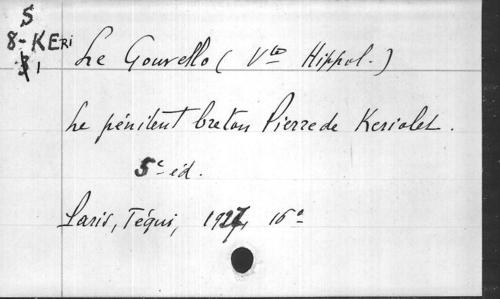 S
8-KEri
1
Le Gouvello (Vte Hippol.)
Le pénitent breton Pierre de Keriolet.
5e éd.
Paris, Téqui, 1927, 16°